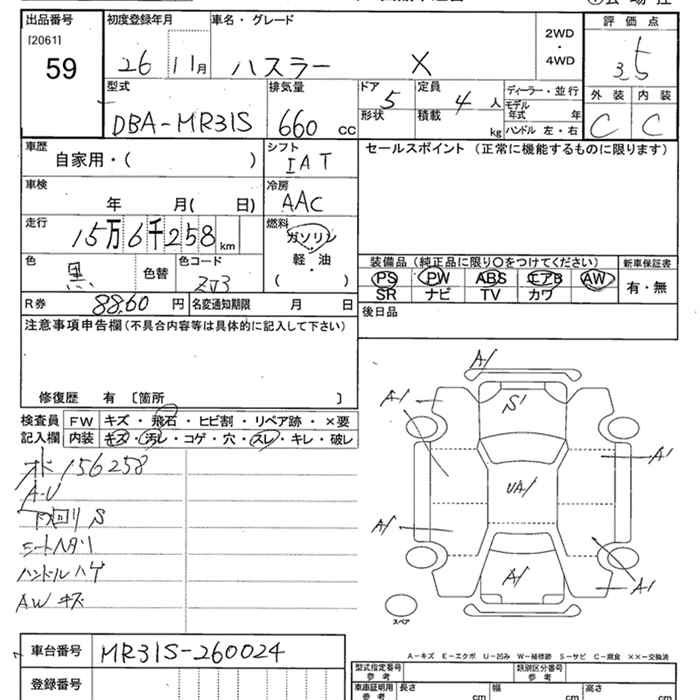 出品番号 初度登録年月 車名・グレード 2WD・4WD 評価点
[2061]
59 26 11月 ハスラー X 3.5
型式 排気量 ドア 定員 ディーラー・並行 外装 内装
DBA-MR31S 660 cc 5 4人 モデル年式 年 C C
形状 積載 kg ハンドル 左・右
車歴 シフト セールスポイント (正常に機能するものに限ります)
自家用・( ) IAT
車検 冷房
年 月( 日) AAC
走行 燃料
15万6千258km ガソリン
軽・油
( )
色 色替 色コード 装備品(純正品に限り〇をつけてください) 新車保証書
黒 ZJ3 PS PW ABS エアB AW 有・無
SR ナビ TV カワ
R券 8860円 名変通知期限 月 日 後日品
注意事項申告欄(不具合内容等は具体的に記入して下さい)
修復歴 有 [箇所 ]
検査員 FW キズ・飛石・ヒビ割・リペア跡・×要
記入欄 内装 キズ・汚レ・コゲ・穴・スレ・キレ・破レ
オド 156258
A-U
下回り S
シートヘタリ
ハンドルハゲ
AW キズ
A1
S1
A1
A1
UA1
A1
A1
A1
スペア
A-キズ E-エクボ U-凹み W-補修跡 S-サビ C-腐食 ××-交換済
車台番号 MR31S-260024
登録番号
型式指定番号 参考 類別区分番号 参考
車庫証明用 参考 長さ cm 幅 cm 高さ cm